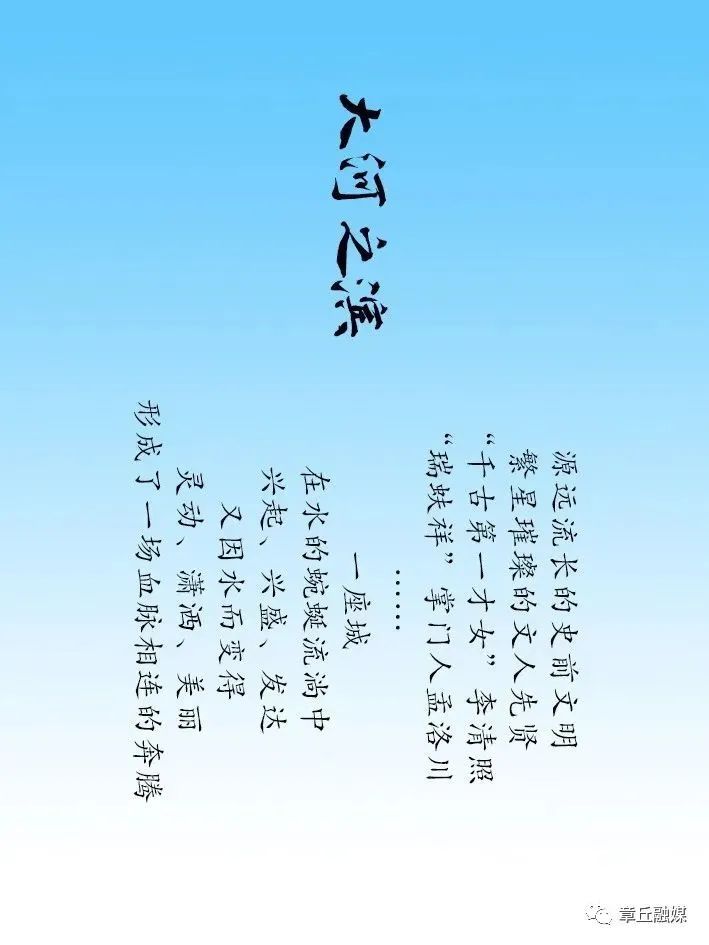 大河之滨
源远流长的史前文明
繁星璀璨的文人先贤
“千古第一才女”李清照
“瑞蚨祥”掌门人孟洛川
……
一座城
在水的蜿蜒流淌中
兴起、兴盛、发达
又因水而变得
灵动、潇洒、美丽
形成了一场血脉相连的奔腾
章丘融媒